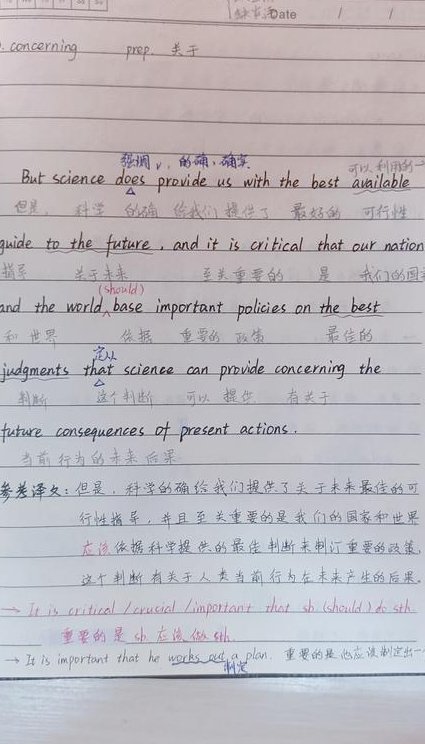 Date / /
concerning prep. 关于
强调 v. 的确, 确实 可以利用的
But science does provide us with the best available
但是, 科学 的确 给我们 提供了 最好的 可行性
guide to the future, and it is critical that our nation
指导 关于未来 至关重要的 是 我们的国
(should)
and the world base important policies on the best
和 世界 依据 重要的 政策 最佳的
定从
judgments that science can provide concerning the
判断 这个判断 可以 提供 有关于
future consequences of present actions.
当前行为的未来后果
参考译文: 但是, 科学的确给我们提供了关于未来最佳的可
行性指导, 并且至关重要的是我们的国家和世界
应该依据科学提供的最佳判断来制订重要的政策,
这个判断有关于人类当前行为在未来产生的后果。
→ It is critical / crucial / important that sb. (should) do sth.
重要的是 sb. 应该做 sth.
→ It is important that he works out a plan. 重要的是他应该制定出一
制定